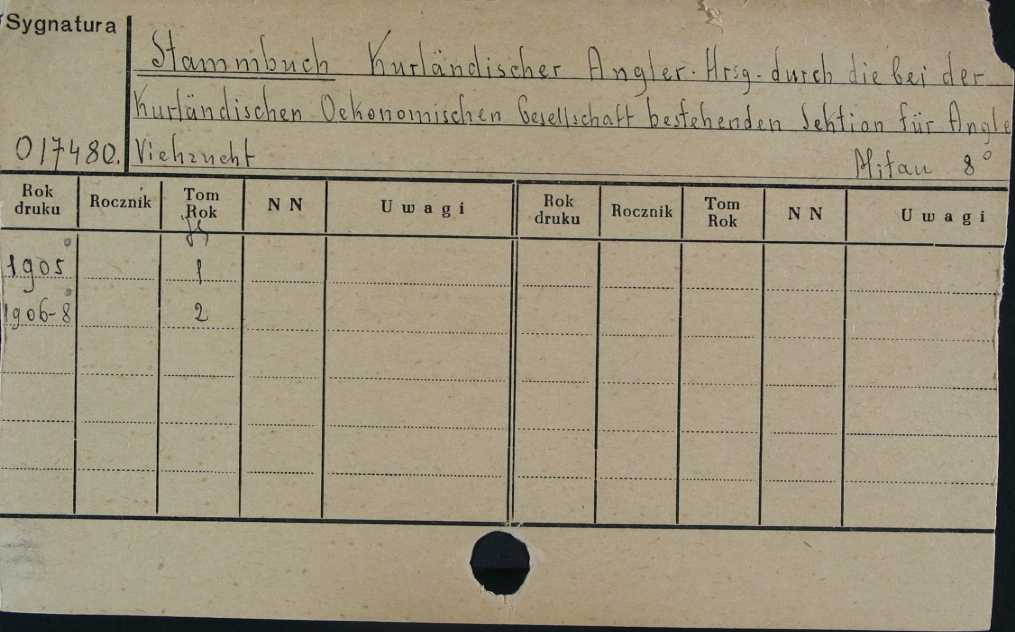 Sygnatura
Stammbuch Kurländischer Angler. Hrsg. durch die bei der
Kurländischen Oekonomischen Gesellschaft bestehenden Sektion für Angle
017480. Viehzucht Mitau 8°
Rok druku Rocznik Tom Rok NN Uwagi Rok druku Rocznik Tom Rok NN Uwagi
1905 1
1906-8 2